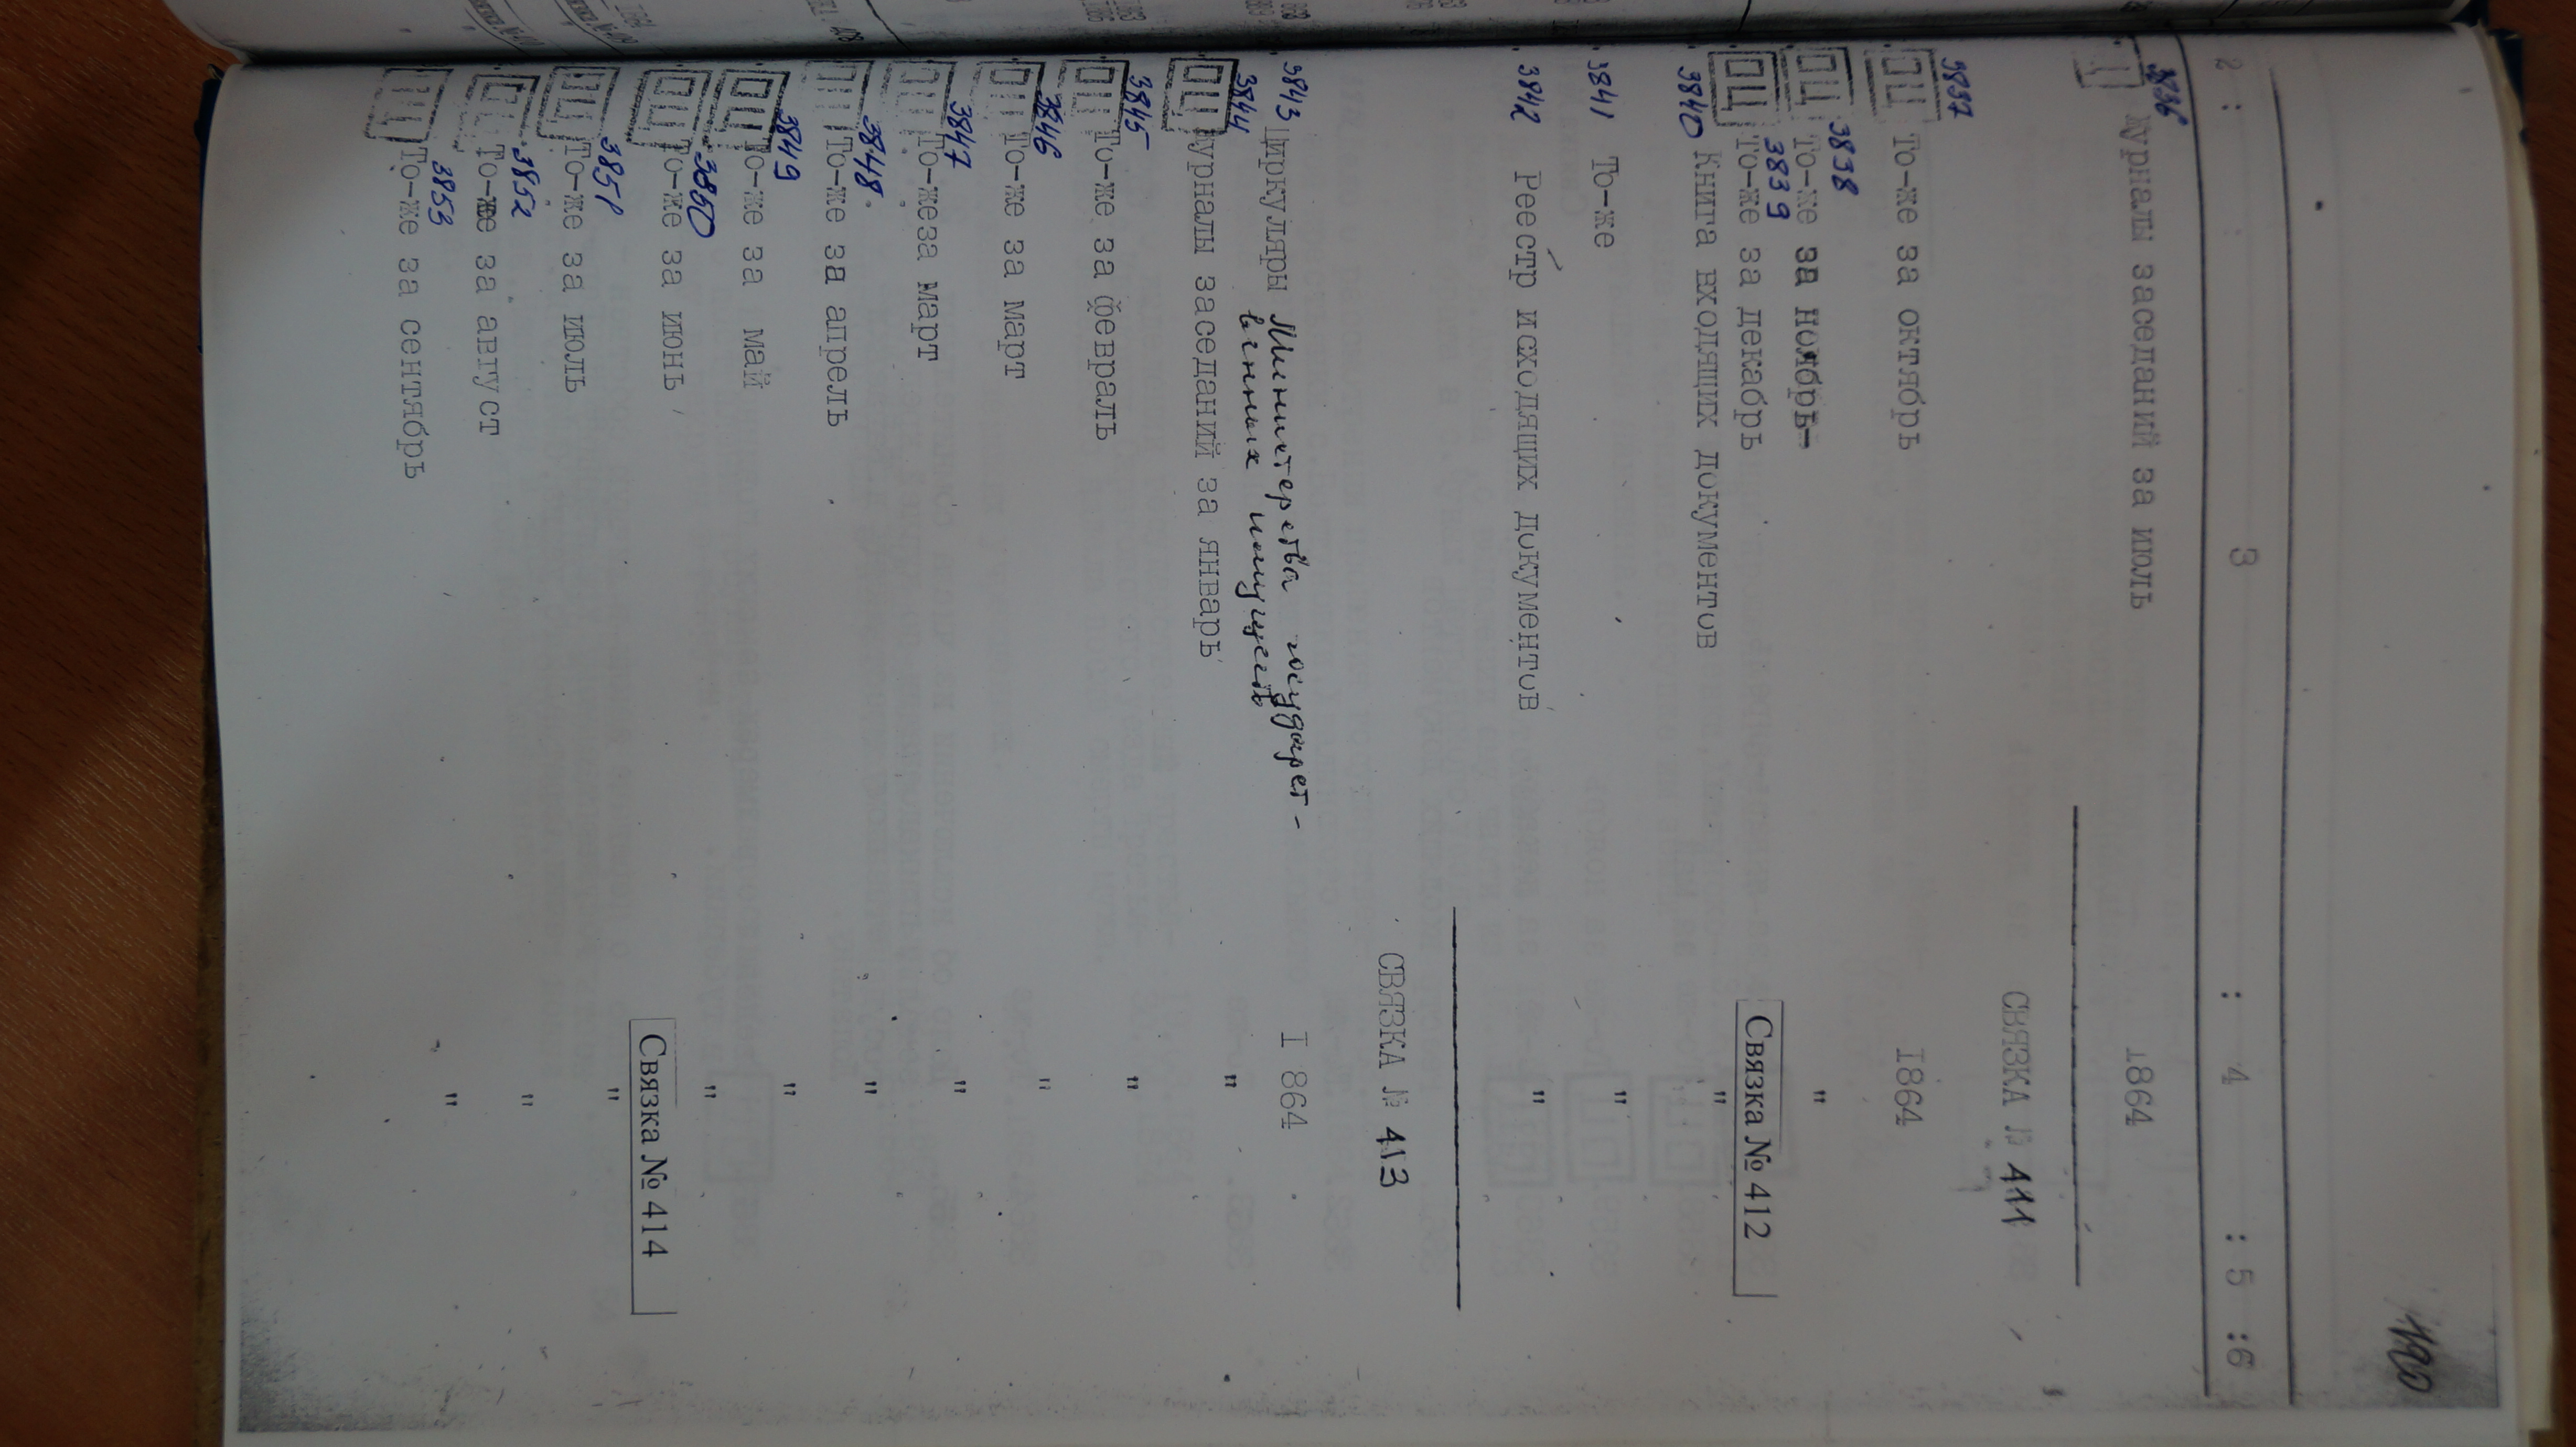 1120
2 : 3 : 4 : 5 :6
3836
Журналы заседаний за июль 1864
СВЯЗКА № 411
3837
ОЦ То-же за октябрь 1864
3838
ОЦ То-же за ноябрь- "
3839
ОЦ То-же за декабрь
Связка № 412
3840 Книга входящих документов "
3841 То-же "
3842 Реестр исходящих документов "
СВЯЗКА № 413
3843 Циркуляры Министерства государст- I 864
венных имуществ
3844
ОЦ Журналы заседаний за январь "
3845
ОЦ То-же за февраль "
3846
ОЦ То-же за март "
3847
ОЦ То-жеза март "
3848
ОЦ То-же за апрель "
3849
ОЦ То-же за май "
3850
ОЦ То-же за июнь "
Связка № 414
3851
ОЦ То-же за июль "
3852
ОЦ То-же за август "
3853
ОЦ То-же за сентябрь "